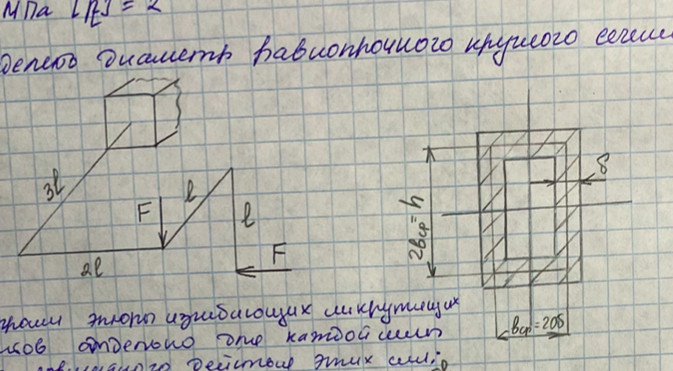 МПа [n] = 2
делить диаметр равнопрочного круглого сечени
3l
F
l
l
F
2l
2bср = h
δ
bср = 20δ
троим эпюры изгибающих и крутящих
отдельно для каждой силы
действия этих сил: